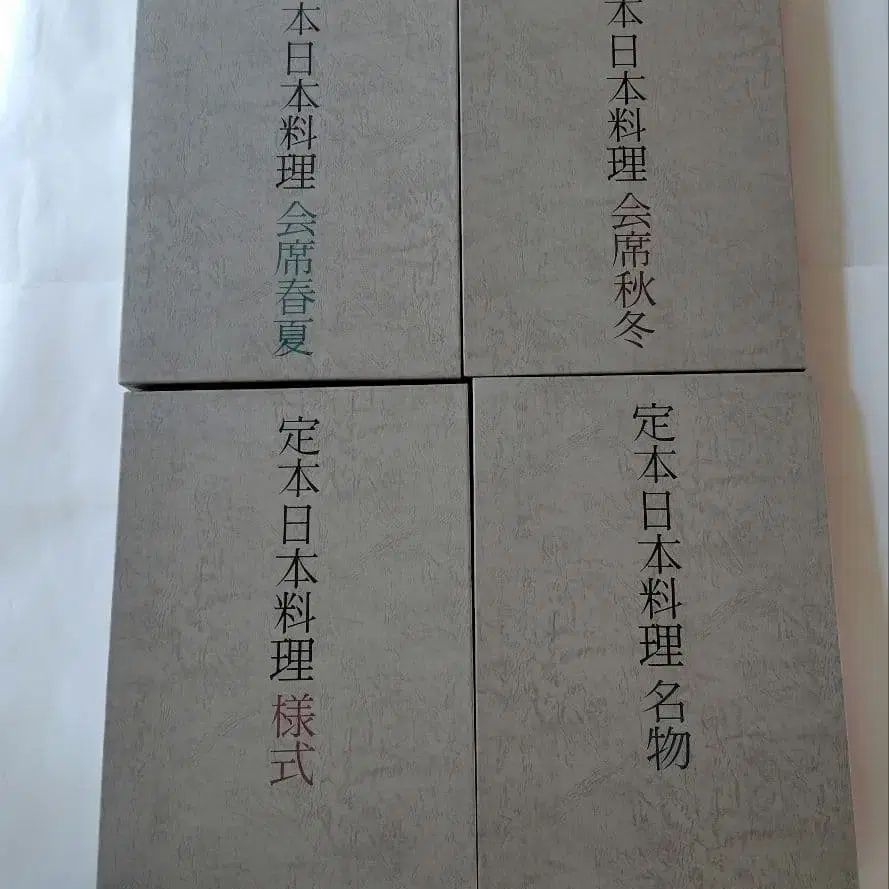 本日本料理 会席春夏
本日本料理 会席秋冬
定本日本料理 様式
定本日本料理 名物